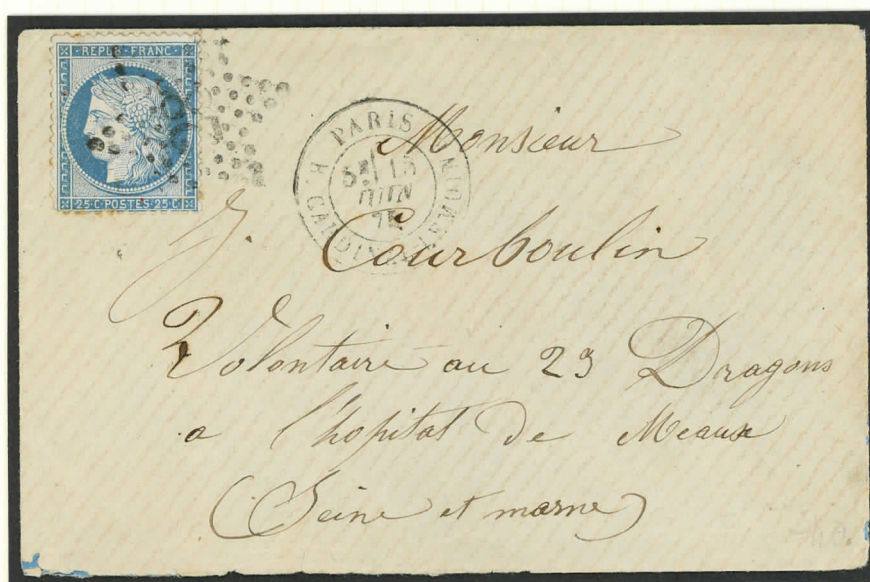 REPUB · FRANC ·
25 · C · POSTES · 25 · C
PARIS
15
JUIN
75
R. CARDINAL LEMOINE
Monsieur
J. Courboulin
Volontaire au 23 Dragons
a l'hopital de Meaux
(Seine et marne)